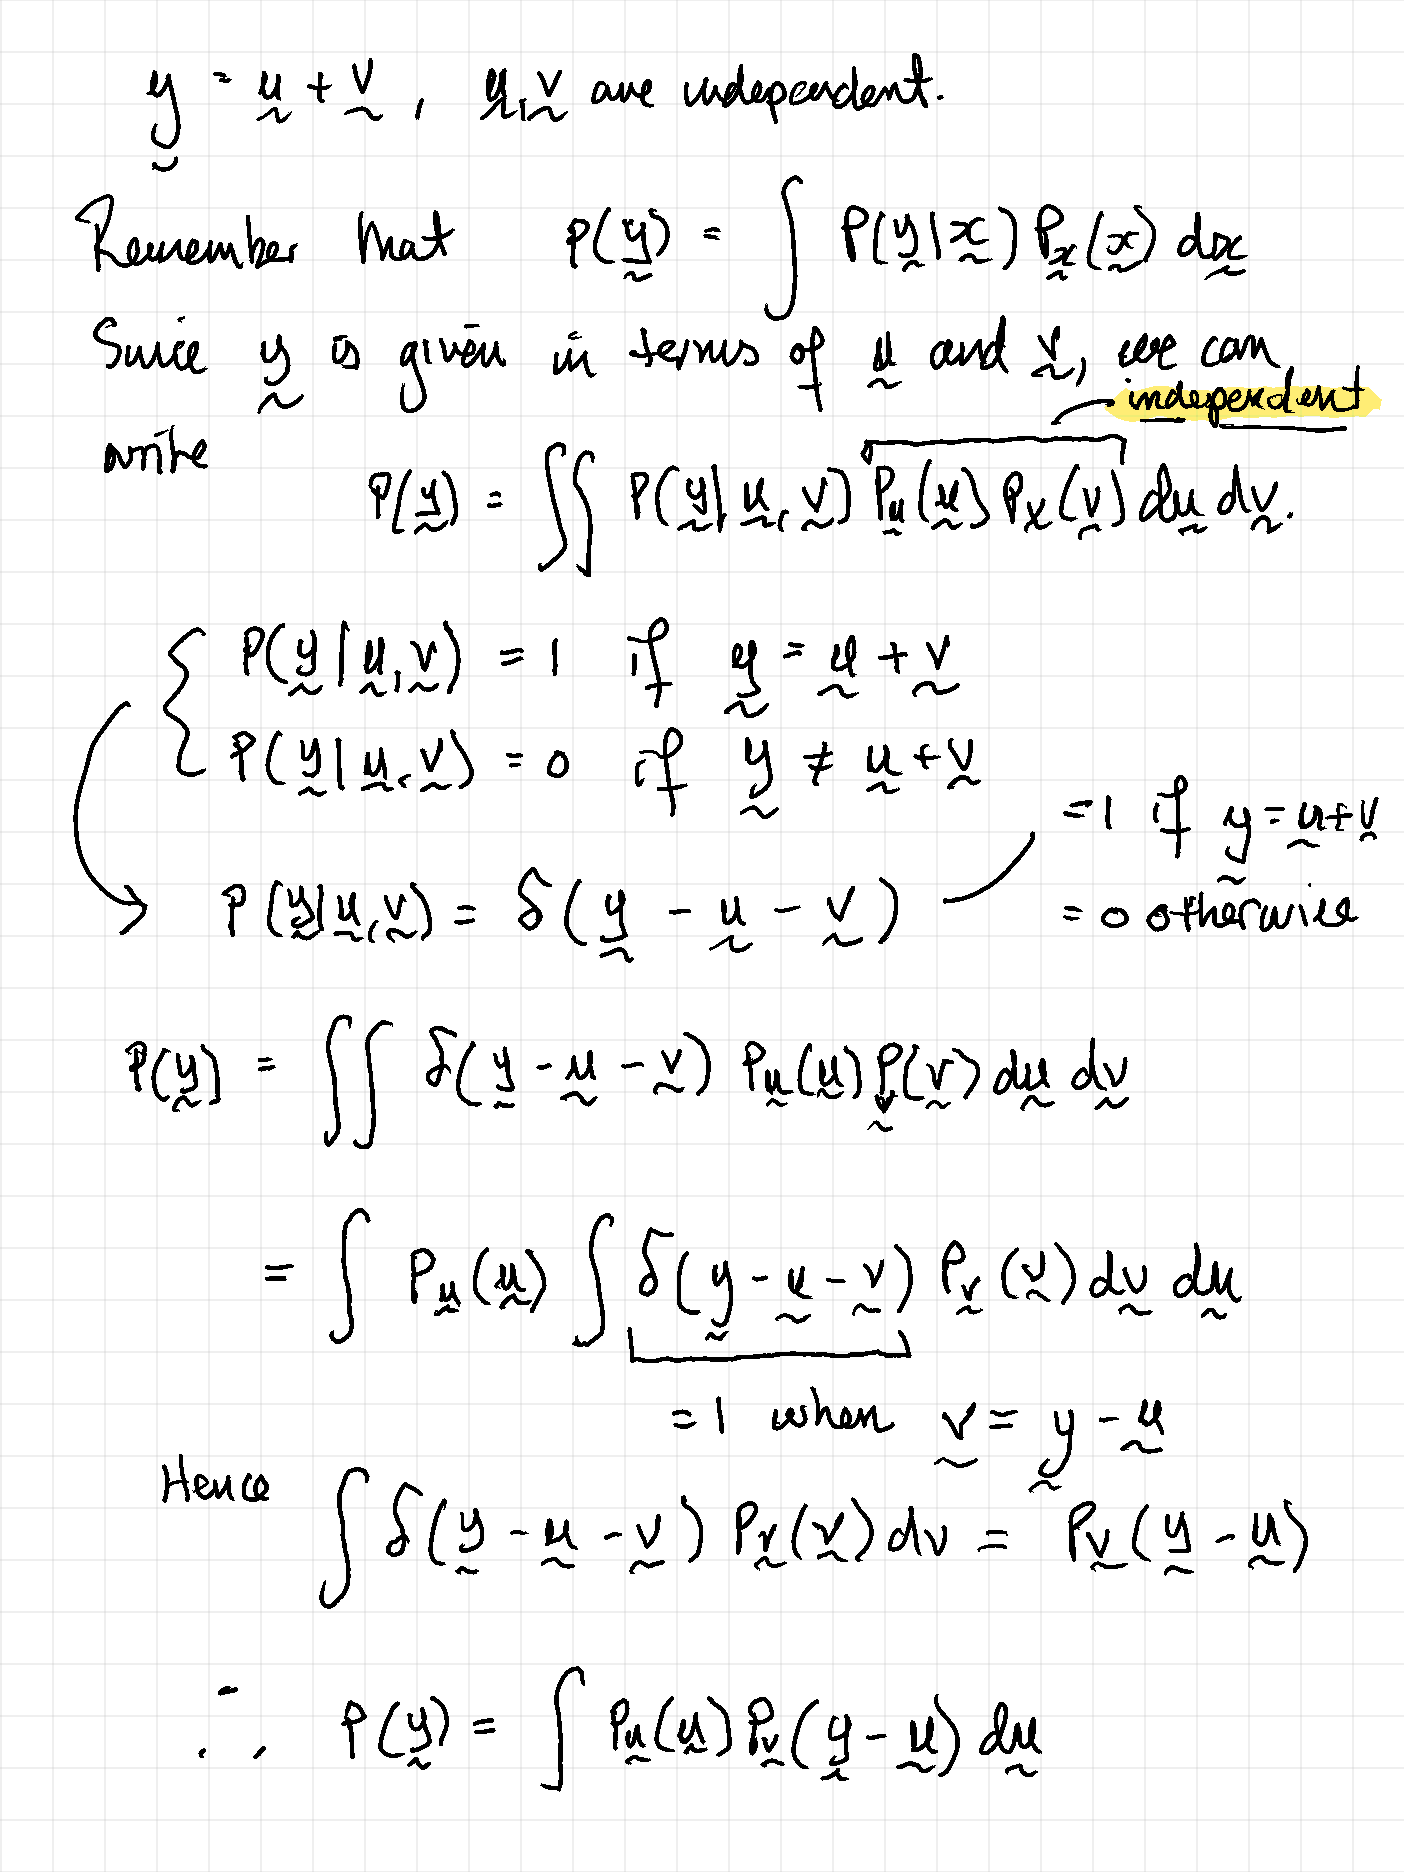 y = u + v, u, v are independent.
Remember that P(y) = ∫ P(y|x) P_x(x) dx
Since y is given in terms of u and v, we can
independent
write
P(y) = ∬ P(y|u, v) P_u(u) P_v(v) du dv.
P(y|u, v) = 1 if y = u + v
P(y|u, v) = 0 if y ≠ u + v
= 1 if y = u + v
P(y|u, v) = δ(y - u - v)
= 0 otherwise
P(y) = ∬ δ(y - u - v) P_u(u) P_v(v) du dv
= ∫ P_u(u) ∫ δ(y - u - v) P_v(v) dv du
= 1 when v = y - u
Hence
∫ δ(y - u - v) P_v(v) dv = P_v(y - u)
∴ P(y) = ∫ P_u(u) P_v(y - u) du